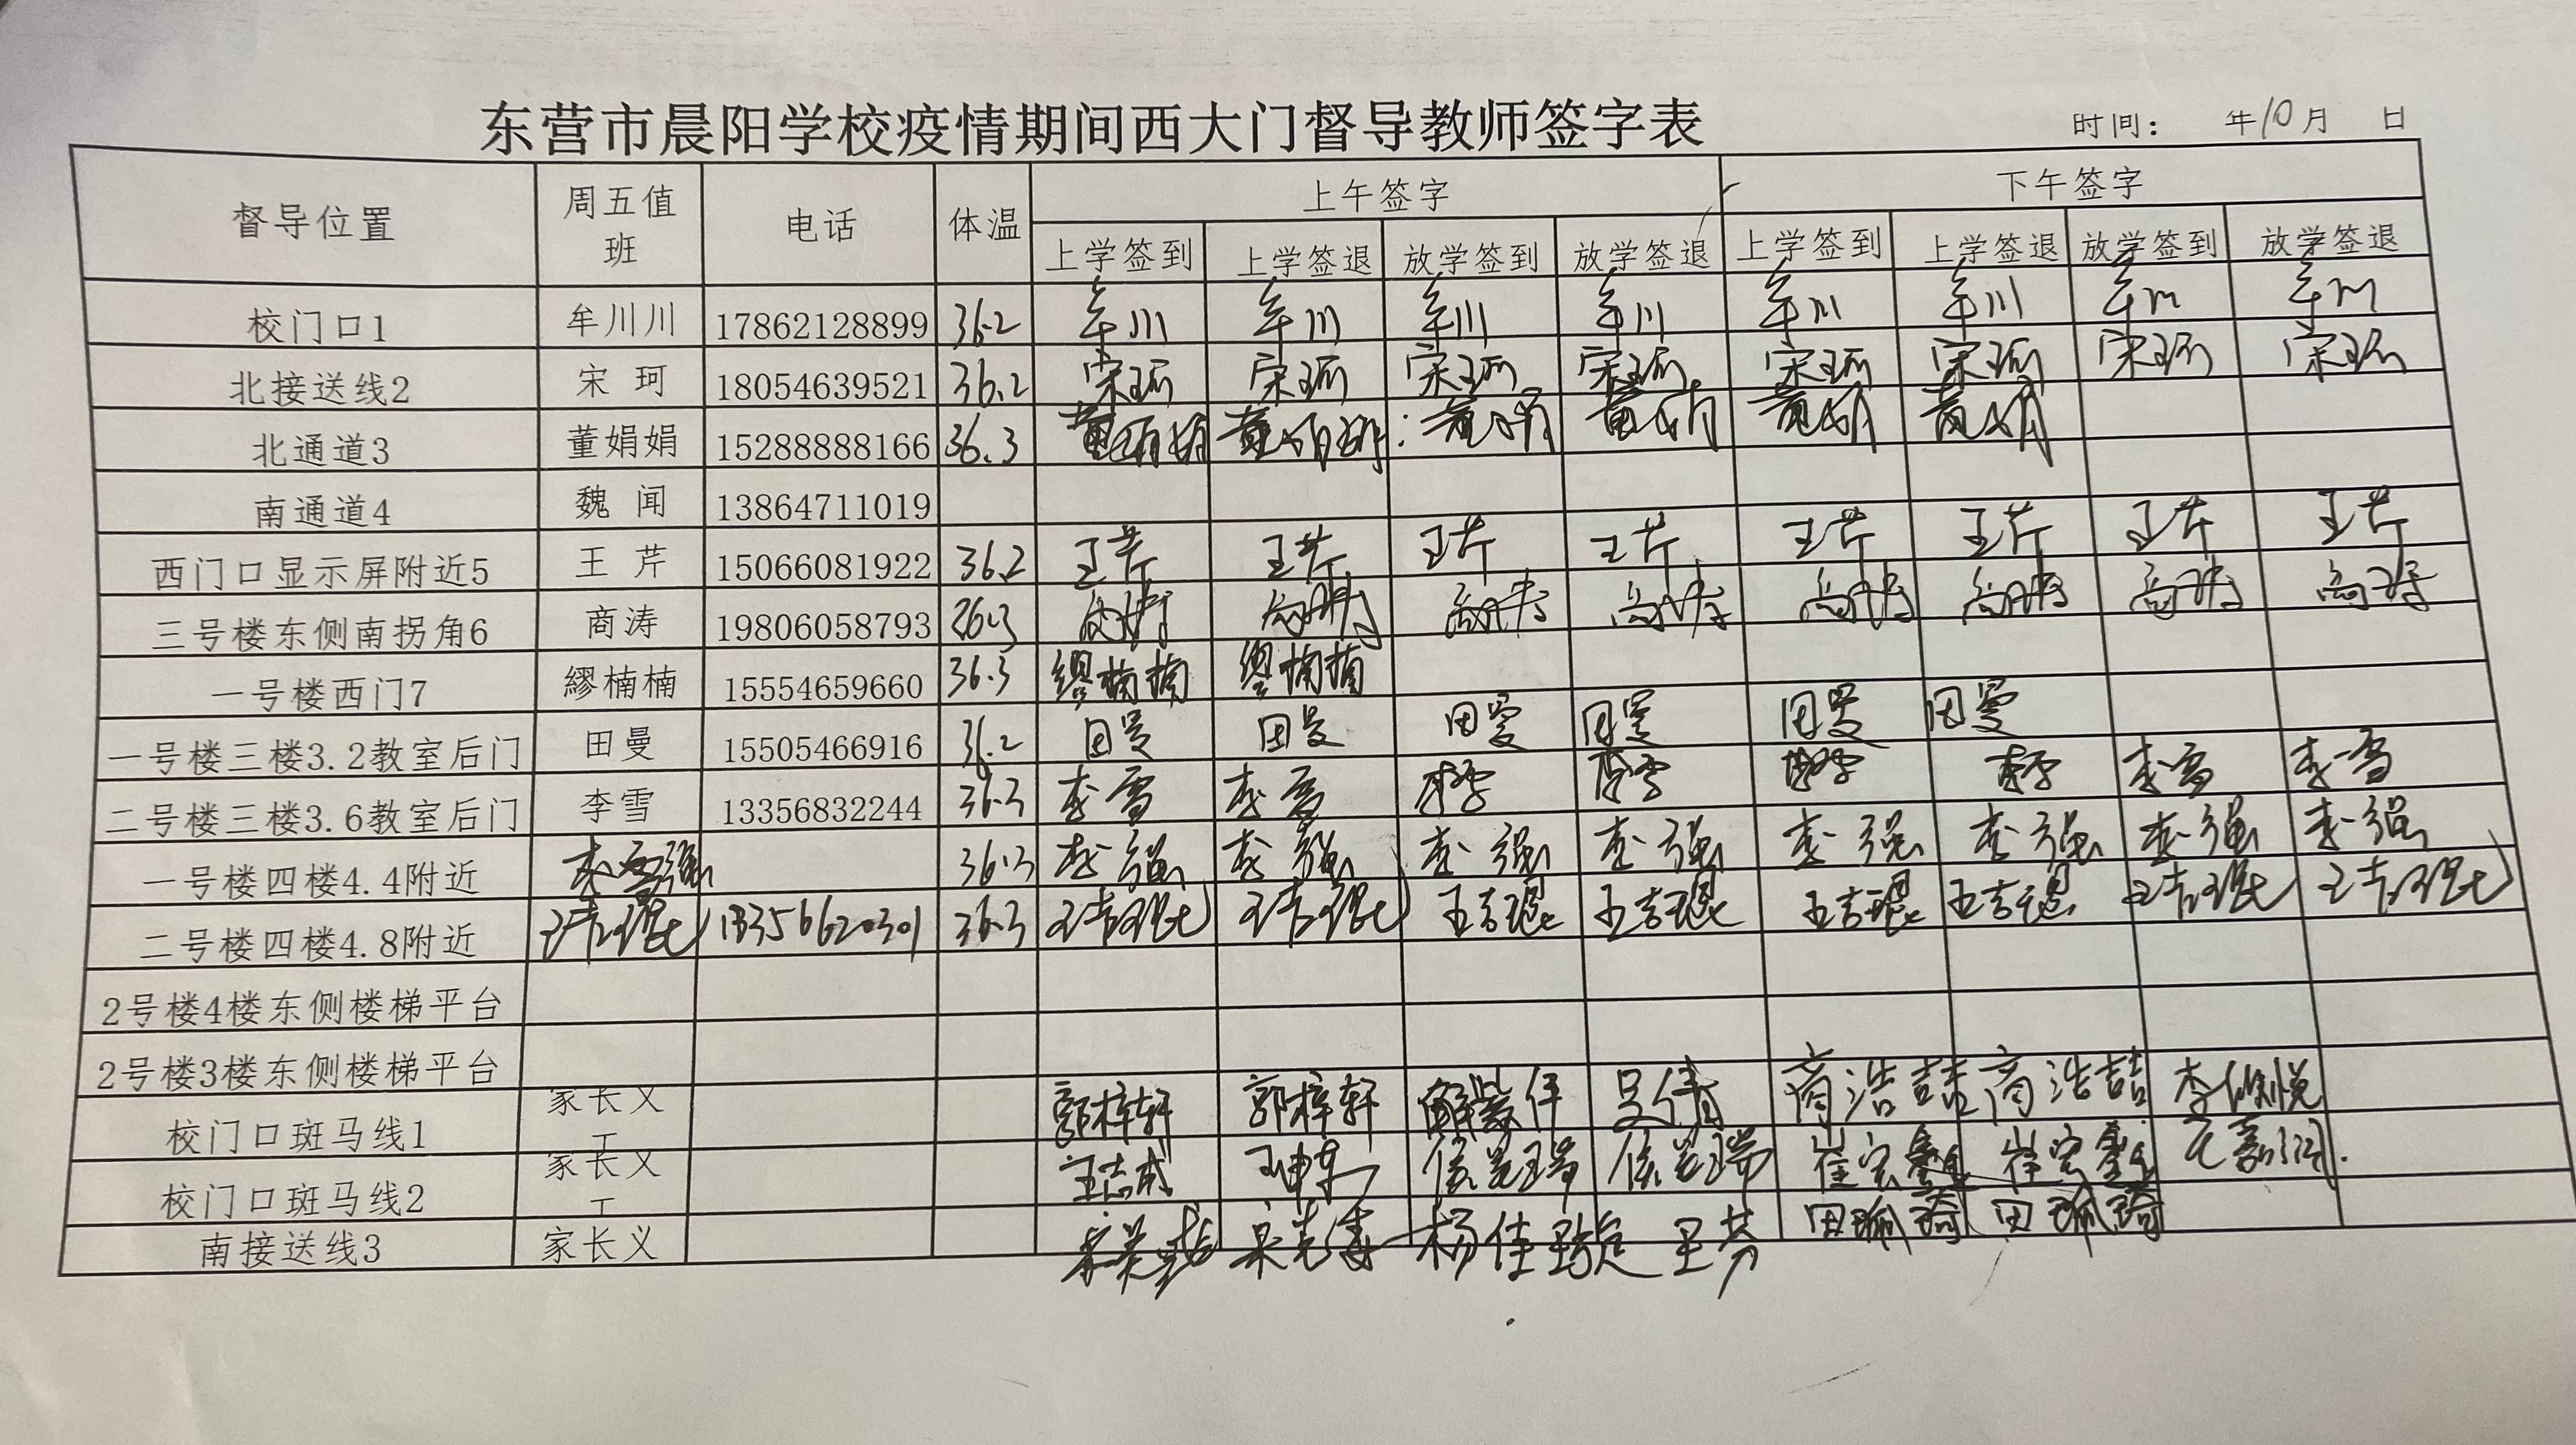 东营市晨阳学校疫情期间西大门督导教师签字表
时间： 年10月 日
督导位置 周五值班 电话 体温 上午签字 下午签字
上学签到 上学签退 放学签到 放学签退 上学签到 上学签退 放学签到 放学签退
校门口1 牟川川 17862128899 36.2 牟川 牟川 牟川 牟川 牟川 牟川 牟川 牟川
北接送线2 宋珂 18054639521 36.2 宋珂 宋珂 宋珂 宋珂 宋珂 宋珂 宋珂 宋珂
北通道3 董娟娟 15288888166 36.3 董娟娟 董娟娟 董娟 董娟 董娟 董娟
南通道4 魏闻 13864711019
西门口显示屏附近5 王芹 15066081922 36.2 王芹 王芹 王芹 王芹 王芹 王芹 王芹 王芹
三号楼东侧南拐角6 商涛 19806058793 36.3 商涛 商涛 商涛 商涛 商涛 商涛 商涛 商涛
一号楼西门7 繆楠楠 15554659660 36.3 缪楠楠 缪楠楠
一号楼三楼3.2教室后门 田曼 15505466916 36.2 田曼 田曼 田曼 田曼 田曼 田曼
二号楼三楼3.6教室后门 李雪 13356832244 36.3 李雪 李雪 李雪 李雪 李雪 李雪 李雪 李雪
一号楼四楼4.4附近 36.3 李强 李强 李强 李强 李强 李强 李强 李强
二号楼四楼4.8附近 王吉琨 18356620301 36.3 王吉琨 王吉琨 王吉琨 王吉琨 王吉琨 王吉琨 王吉琨 王吉琨
2号楼4楼东侧楼梯平台
2号楼3楼东侧楼梯平台
校门口斑马线1 家长义工 郭梓轩 郭梓轩 商浩喆 商浩喆
校门口斑马线2 家长义工 王志成 崔宏鑫 崔宏鑫
南接送线3 家长义 王芳 田珮琦 田珮琦